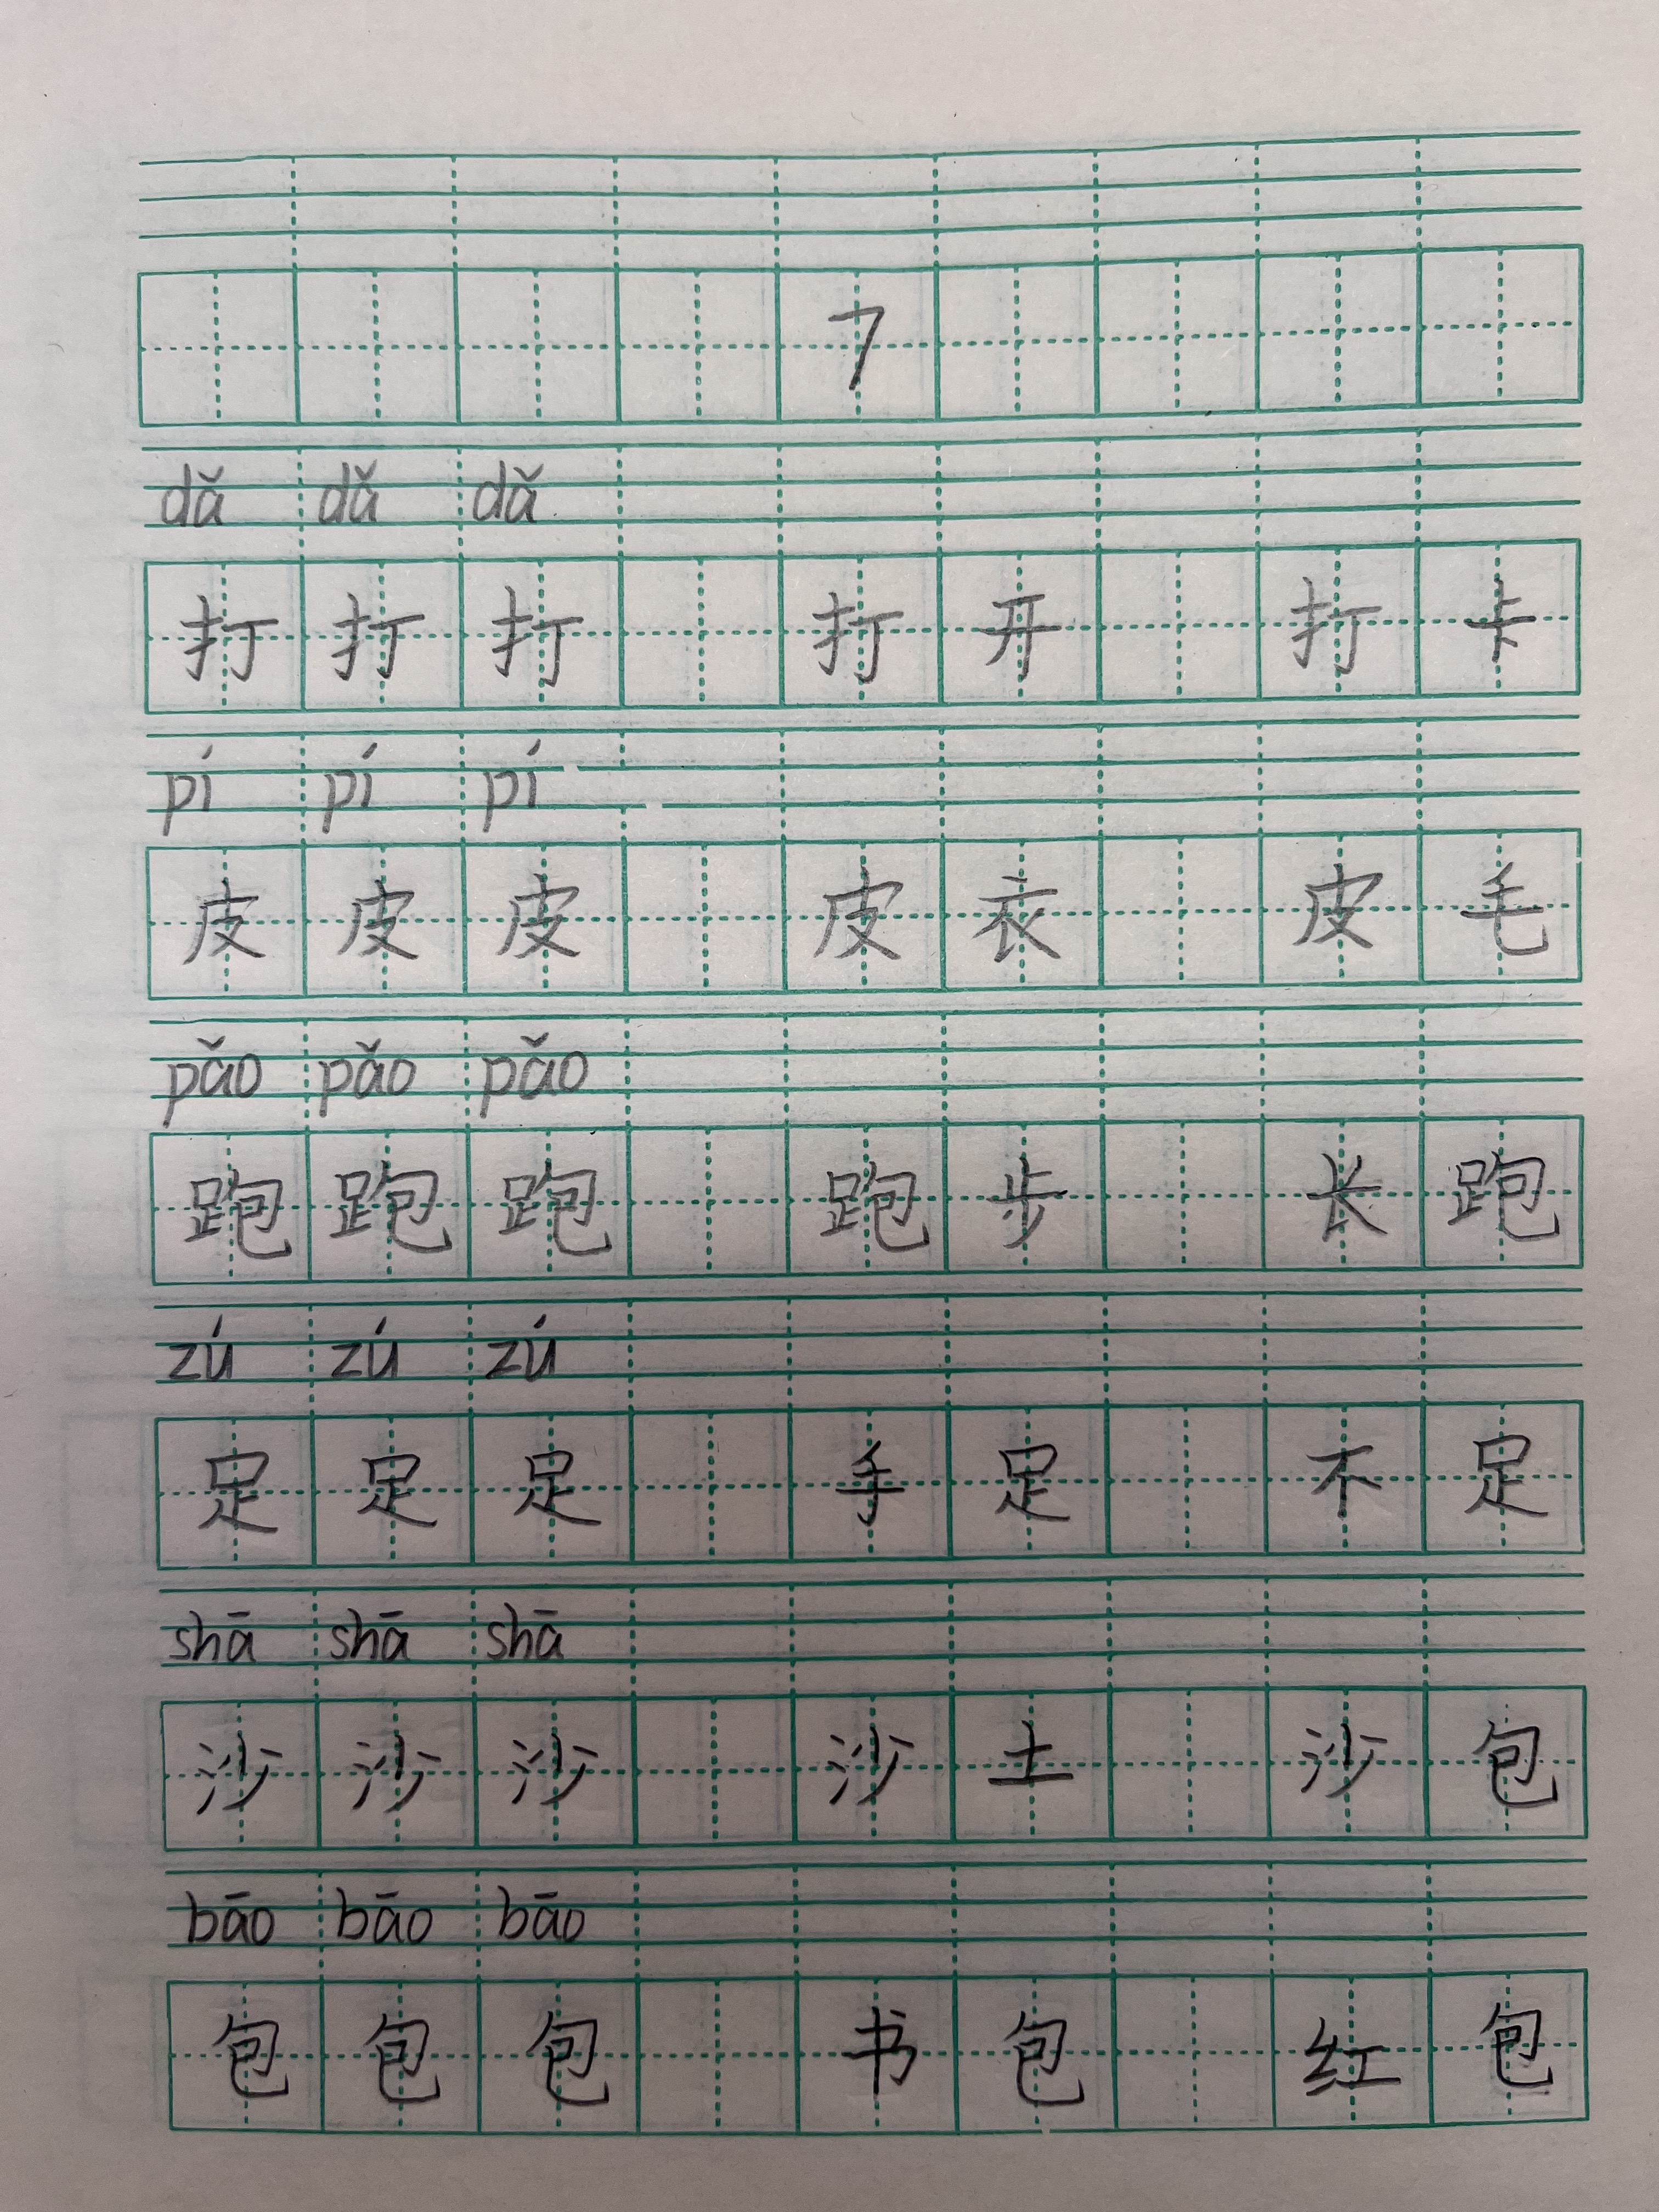 7
dǎ dǎ dǎ
打 打 打 打 开 打 卡
pí pí pí
皮 皮 皮 皮 衣 皮 毛
pǎo pǎo pǎo
跑 跑 跑 跑 步 长 跑
zú zú zú
足 足 足 手 足 不 足
shā shā shā
沙 沙 沙 沙 土 沙 包
bāo bāo bāo
包 包 包 书 包 红 包